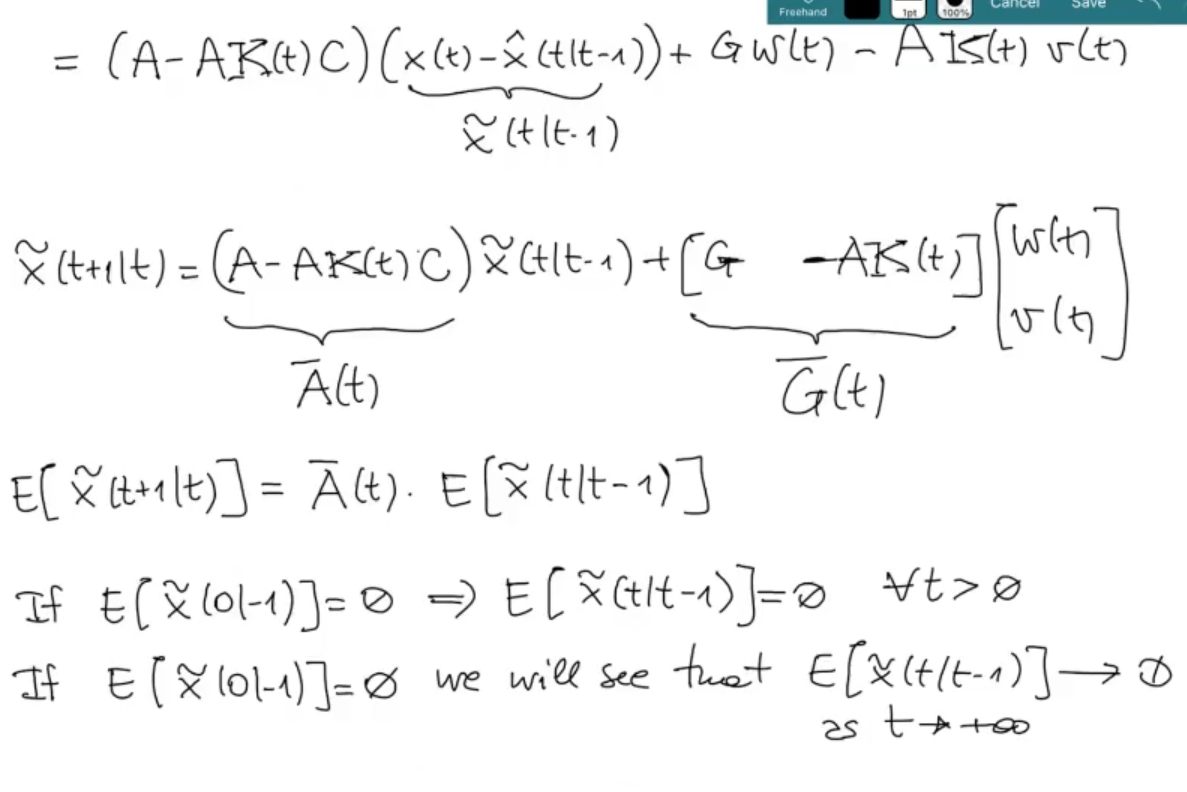 Freehand 1pt 100% Cancel Save
= (A - AK(t)C)(x(t) - x̂(t|t-1)) + Gw(t) - AK(t) v(t)
x̃(t|t-1)
x̃(t+1|t) = (A - AK(t)C) x̃(t|t-1) + [G -AK(t)] [w(t) v(t)]
Ā(t) Ḡ(t)
E[x̃(t+1|t)] = Ā(t). E[x̃(t|t-1)]
If E[x̃(0|-1)] = ∅ ⇒ E[x̃(t|t-1)] = ∅ ∀t > ∅
If E[x̃(0|-1)] = ∅ we will see that E[x̃(t|t-1)] → ∅
as t → +∞